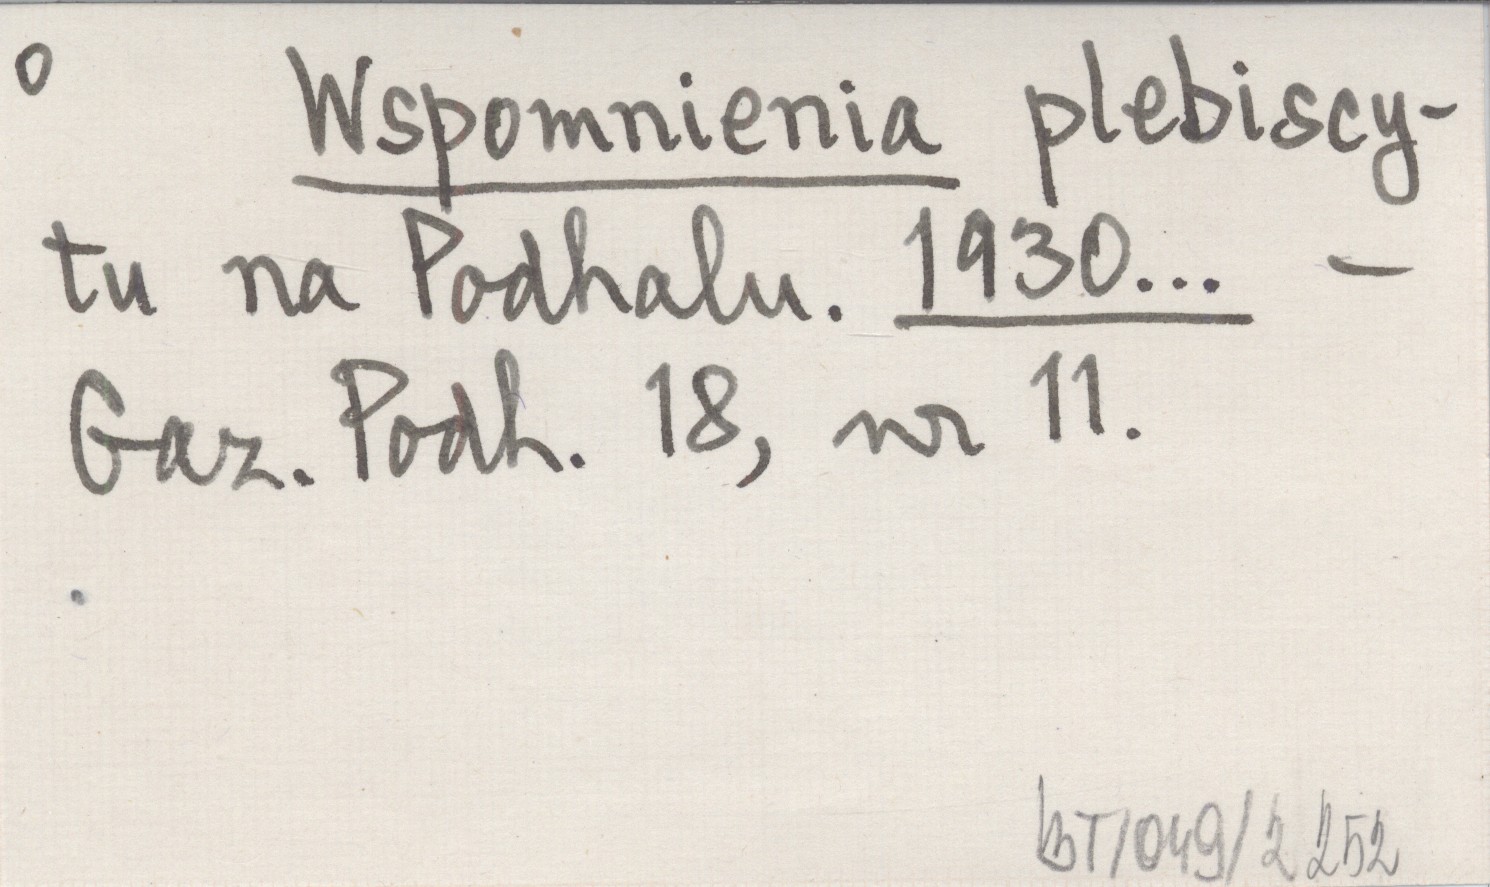 o Wspomnienia plebiscy-
tu na Podhalu. 1930... -
Gaz. Podh. 18, nr 11.
BT/049/2252